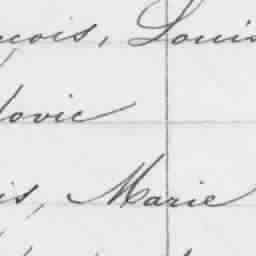 çois, Louis
dovic
is, Marie